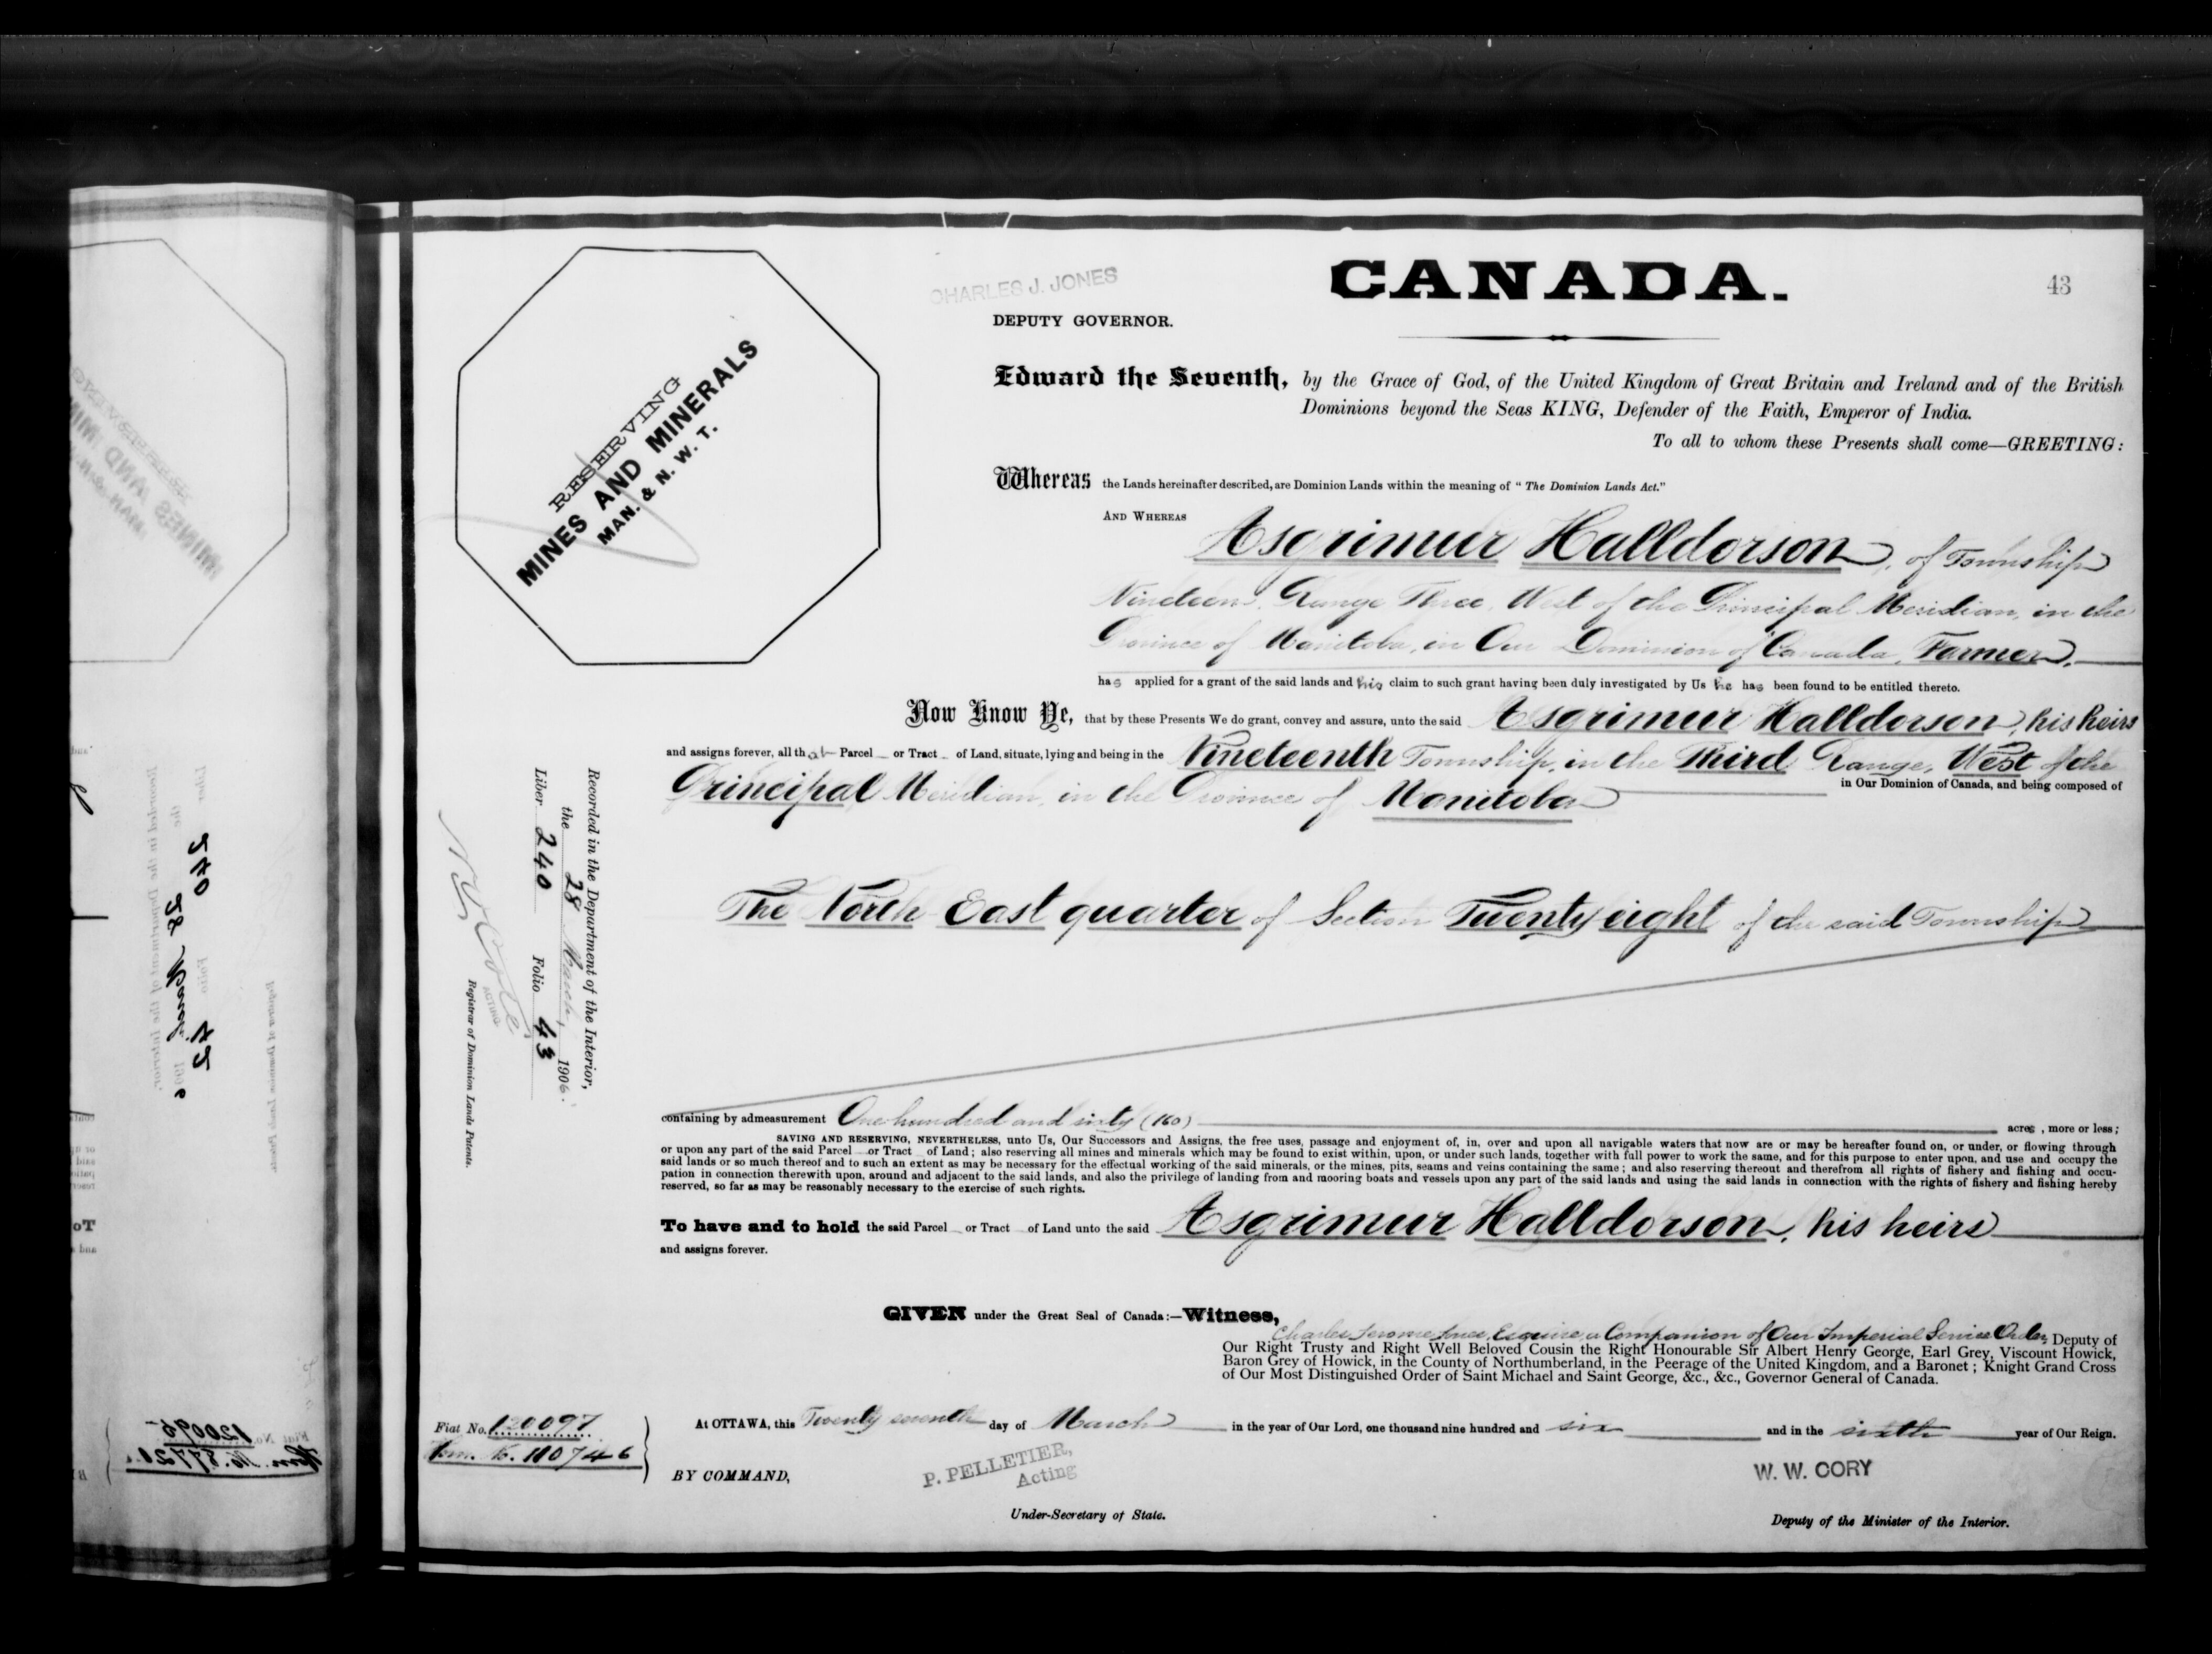 CHARLES J. JONES
DEPUTY GOVERNOR.
CANADA.
43
RESERVING
MINES AND MINERALS
MAN. & N. W. T.
Edward the Seventh, by the Grace of God, of the United Kingdom of Great Britain and Ireland and of the British
Dominions beyond the Seas KING, Defender of the Faith, Emperor of India.
To all to whom these Presents shall come—GREETING:
Whereas the Lands hereinafter described, are Dominion Lands within the meaning of "The Dominion Lands Act."
AND WHEREAS Asgrimur Halldorson, of Township
Nineteen, Range Three, West of the Principal Meridian, in the
Province of Manitoba, in Our Dominion of Canada, Farmer,
has applied for a grant of the said lands and his claim to such grant having been duly investigated by Us he has been found to be entitled thereto.
Now Know Ye, that by these Presents We do grant, convey and assure, unto the said Asgrimur Halldorson, his heirs
and assigns forever, all that Parcel or Tract of Land, situate, lying and being in the Nineteenth Township, in the Third Range, West of the
Principal Meridian, in the Province of Manitoba in Our Dominion of Canada, and being composed of
The North East quarter of Section Twenty eight of the said Township
containing by admeasurement One hundred and sixty (160) acres, more or less;
SAVING AND RESERVING, NEVERTHELESS, unto Us, Our Successors and Assigns, the free uses, passage and enjoyment of, in, over and upon all navigable waters that now are or may be hereafter found on, or under, or flowing through
or upon any part of the said Parcel or Tract of Land; also reserving all mines and minerals which may be found to exist within, upon, or under such lands, together with full power to work the same, and for this purpose to enter upon, and use and occupy the
said lands or so much thereof and to such an extent as may be necessary for the effectual working of the said minerals, or the mines, pits, seams and veins containing the same; and also reserving thereout and therefrom all rights of fishery and fishing and occu-
pation in connection therewith upon, around and adjacent to the said lands, and also the privilege of landing from and mooring boats and vessels upon any part of the said lands and using the said lands in connection with the rights of fishery and fishing hereby
reserved, so far as may be reasonably necessary to the exercise of such rights.
To have and to hold the said Parcel or Tract of Land unto the said Asgrimur Halldorson, his heirs
and assigns forever.
GIVEN under the Great Seal of Canada:—Witness,
Charles Jerome Jones, Esquire, a Companion of Our Imperial Service Order, Deputy of
Our Right Trusty and Right Well Beloved Cousin the Right Honourable Sir Albert Henry George, Earl Grey, Viscount Howick,
Baron Grey of Howick, in the County of Northumberland, in the Peerage of the United Kingdom, and a Baronet; Knight Grand Cross
of Our Most Distinguished Order of Saint Michael and Saint George, &c., &c., Governor General of Canada.
At OTTAWA, this Twenty seventh day of March in the year of Our Lord, one thousand nine hundred and six and in the sixth year of Our Reign.
BY COMMAND,
P. PELLETIER,
Acting
Under-Secretary of State.
W. W. CORY
Deputy of the Minister of the Interior.
Fiat No. 120097
Hom. No. 110746
Recorded in the Department of the Interior,
the 28 March, 1906.
Liber 240 Folio 43
ACTING
Registrar of Dominion Lands Patents.